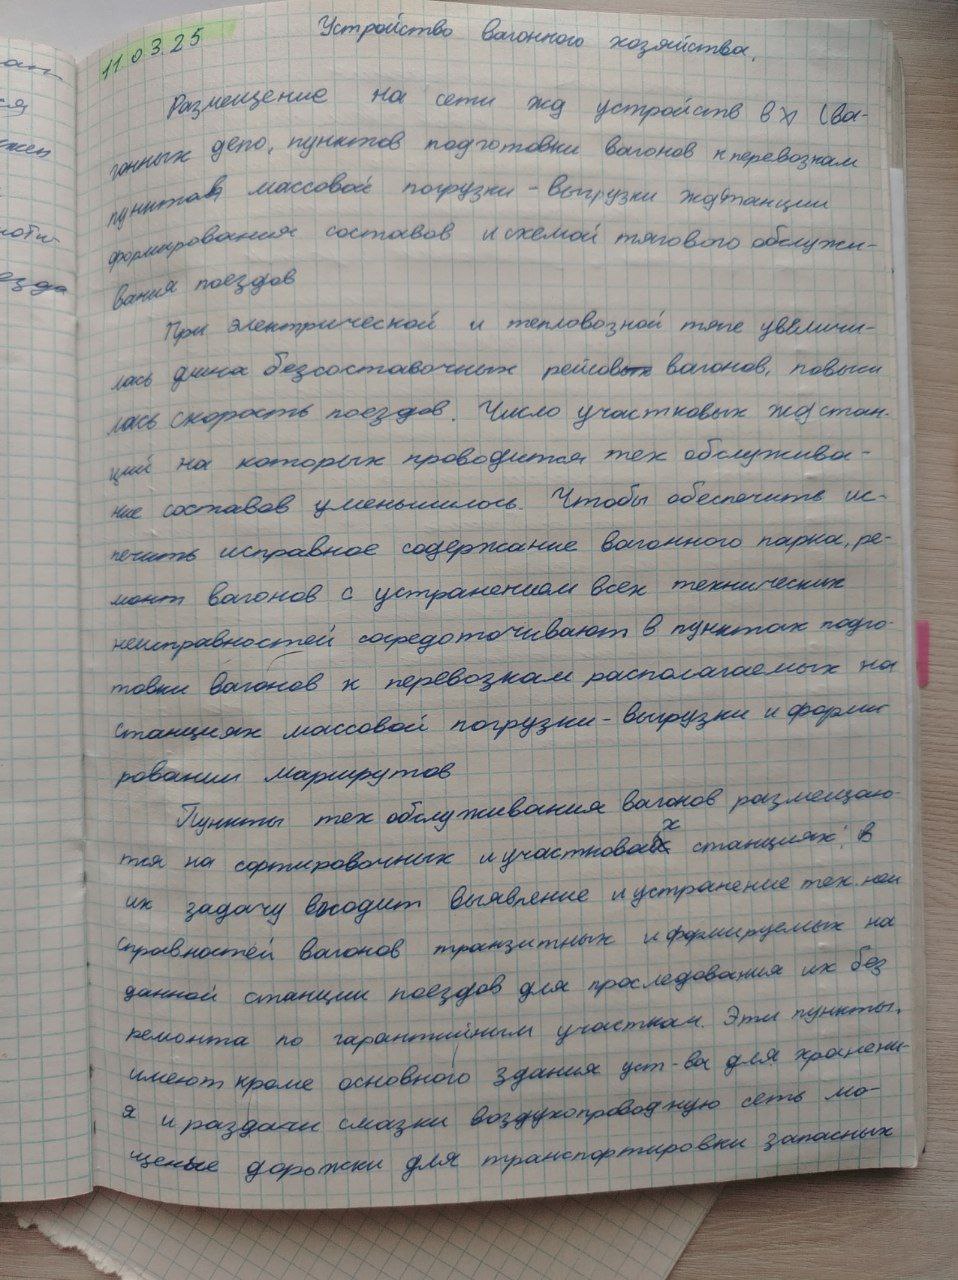 11.03.25
Устройство вагонного хозяйства.
Размещение на сети жд устройств вх (ва-
гонных депо, пунктов подготовки вагонов к перевозкам
пунктов массовой погрузки-выгрузки жд станции
формирования составов и схемой тягового обслужи-
вания поездов
При электрической и тепловозной тяге увеличи-
лась длина безсоставочных рейсов вагонов, повыси
лась скорость поездов. Число участковых жд стан-
ций на которых проводится тех обслужива-
ние составов уменьшилось. Чтобы обеспечить ис-
печить исправное содержание вагонного парка, ре-
монт вагонов с устранением всех технических
неисправностей сосредоточивают в пунктах подго-
товки вагонов к перевозкам располагаемых на
станциях массовой погрузки-выгрузки и форми
ровании маршрутов
Пункты тех обслуживания вагонов размещаю-
тся на сортировочных и участковых станциях. В
их задачу входит выявление и устранение тех. неи
справностей вагонов транзитных и формируемых на
данной станции поездов для проследования их без
ремонта по гарантийным участкам. Эти пункты,
имеют кроме основного здания уст-ва для хранени-
я и раздачи смазки воздухопроводную сеть мо-
щеные дорожки для транспортировки запасных